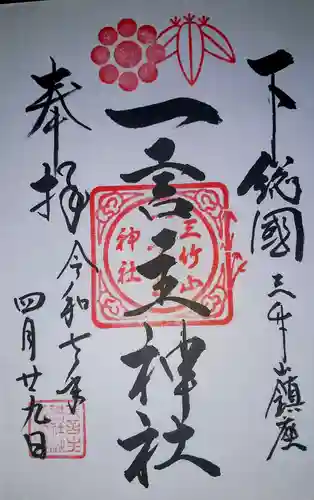 下総國三竹山鎮座
一言主神社
奉拝
令和七年
四月廿九日
三竹山
神社